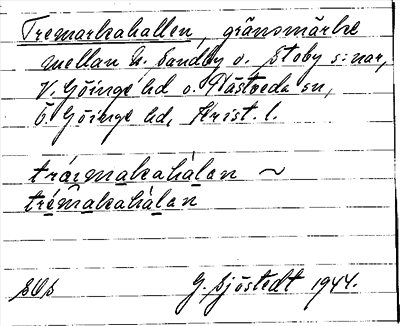 Tremarkahallen, gränsmärke
mellan N. Sandby o. Stoby s:nar,
V. Göinge hd o. Hästveda sn,
Ö Göinge hd, Krist. l.
trármakahálan ~
trémakahálan
G. Sjöstedt 1944.